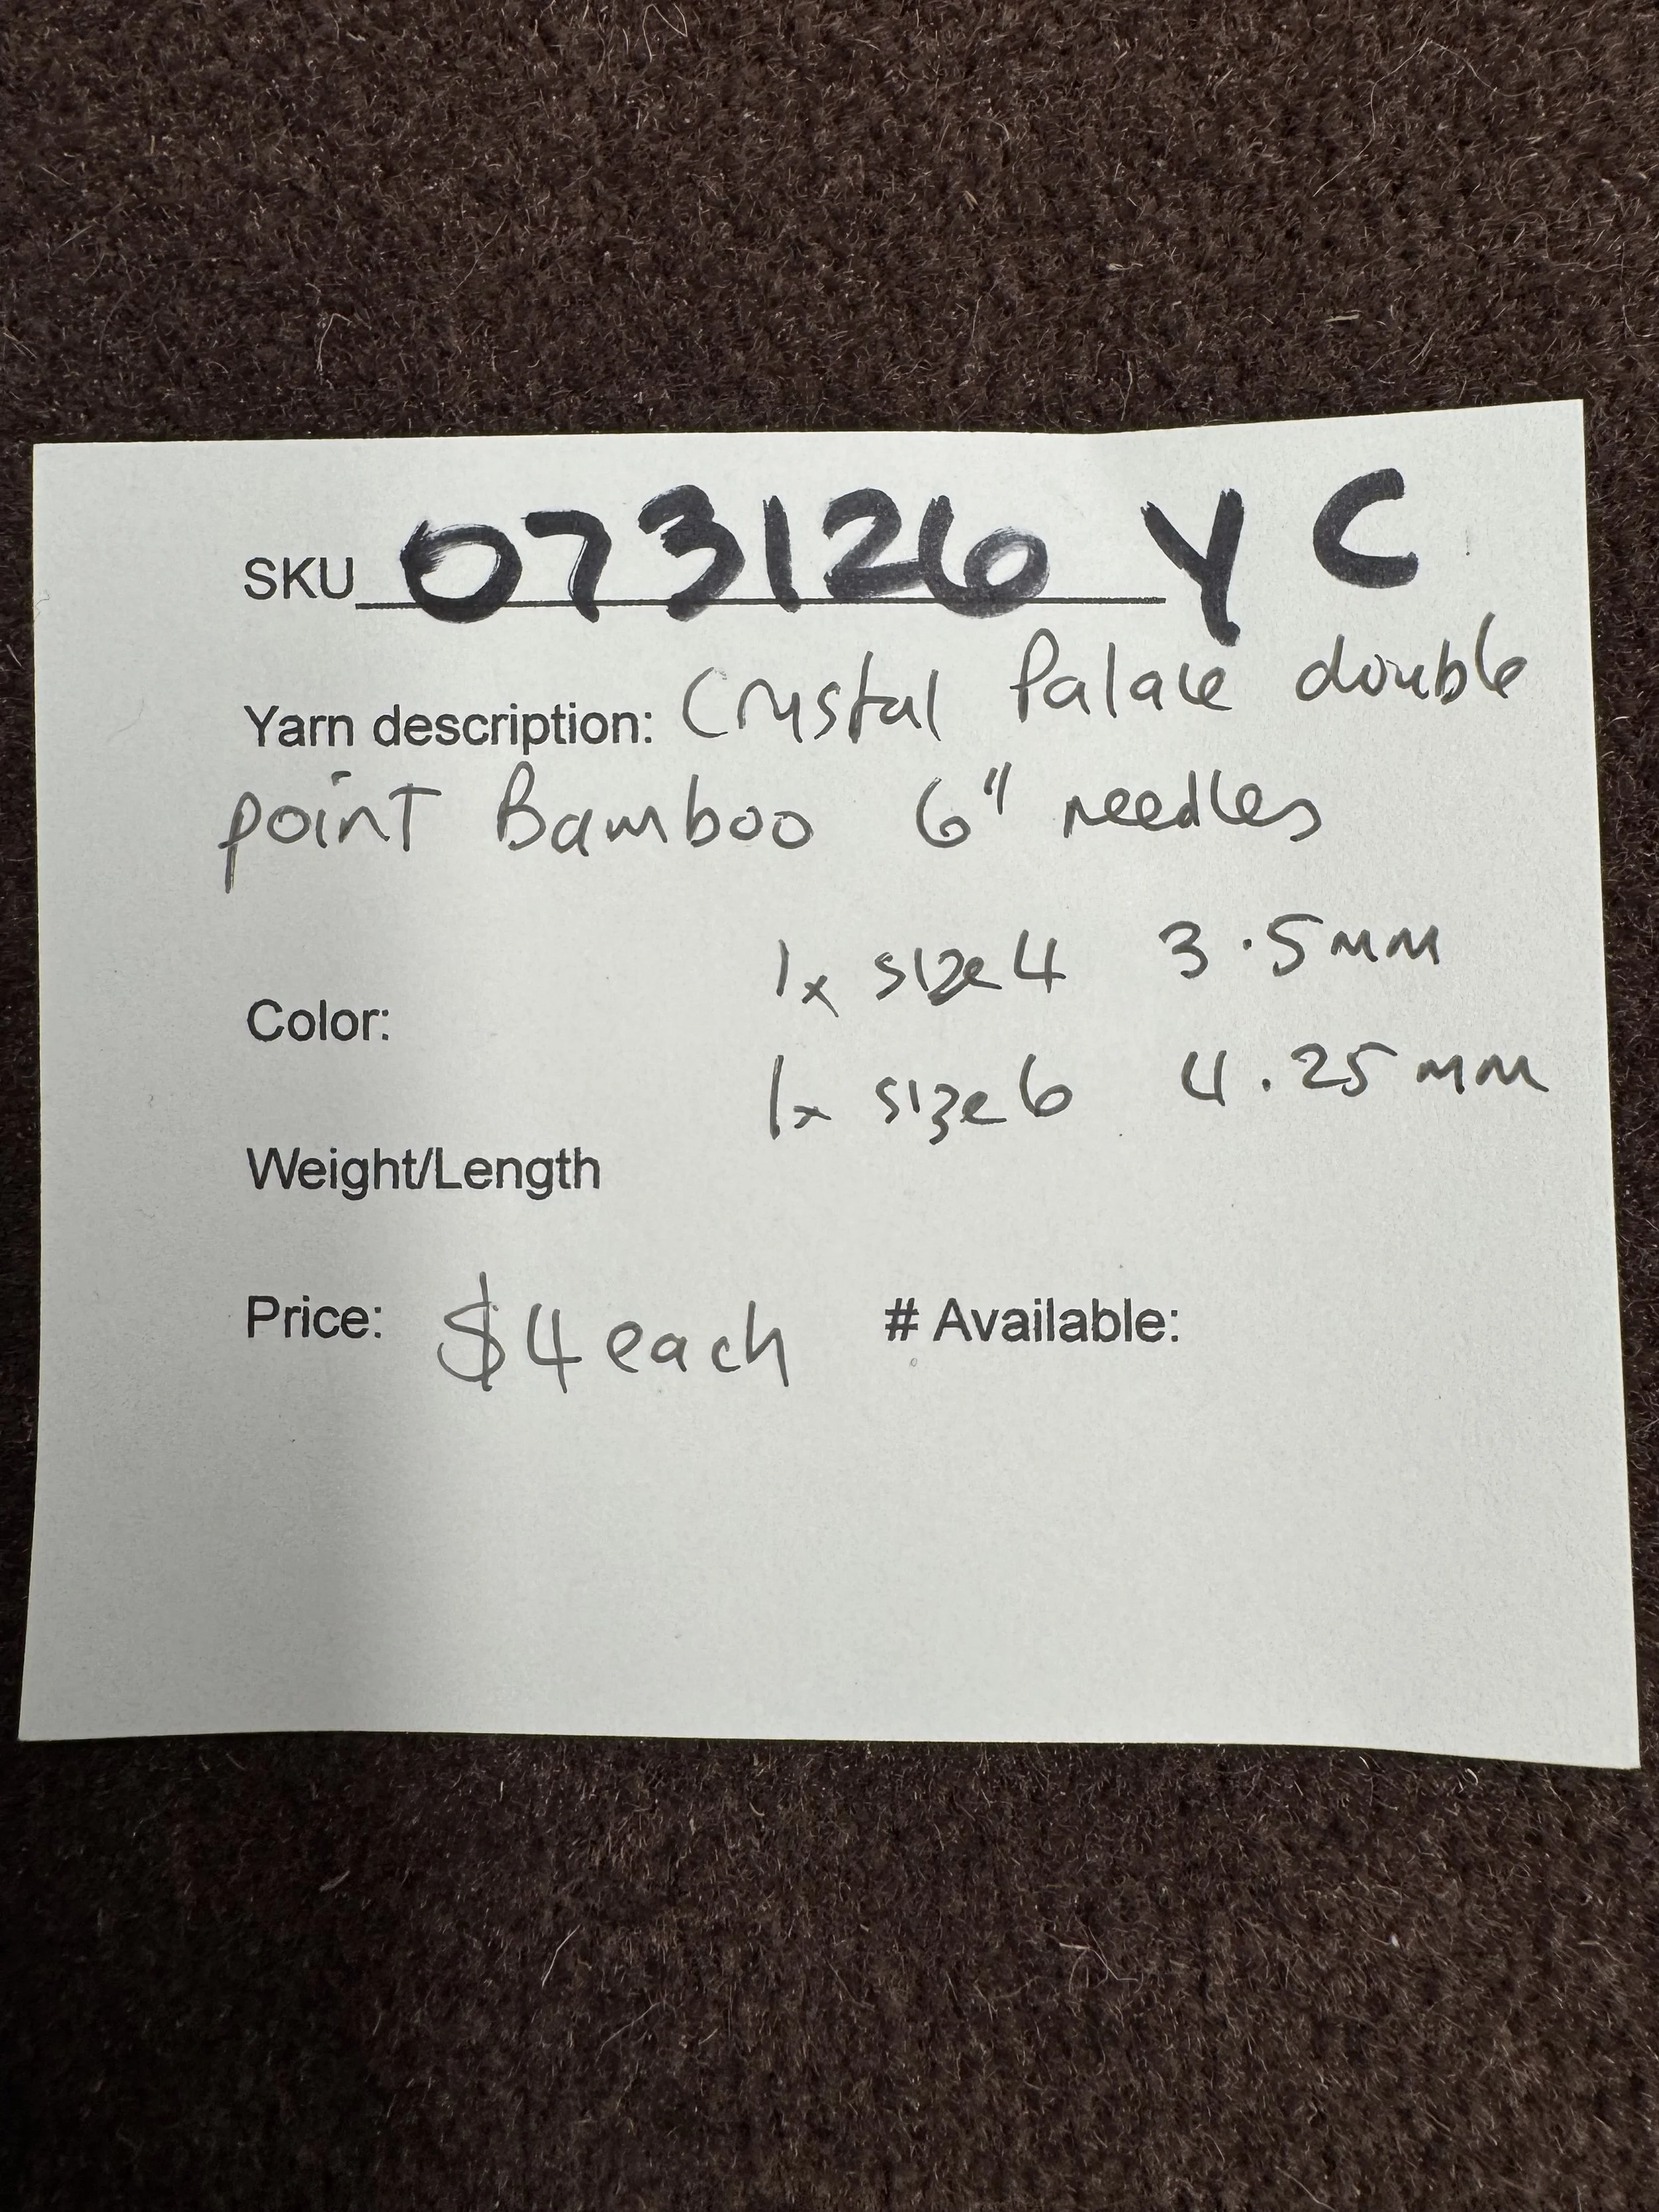 SKU 073126 YC
Yarn description: Crystal Palace double
point Bamboo 6" needles
1x size 4 3.5mm
Color:
1x size 6 4.25mm
Weight/Length
Price: $4 each # Available: